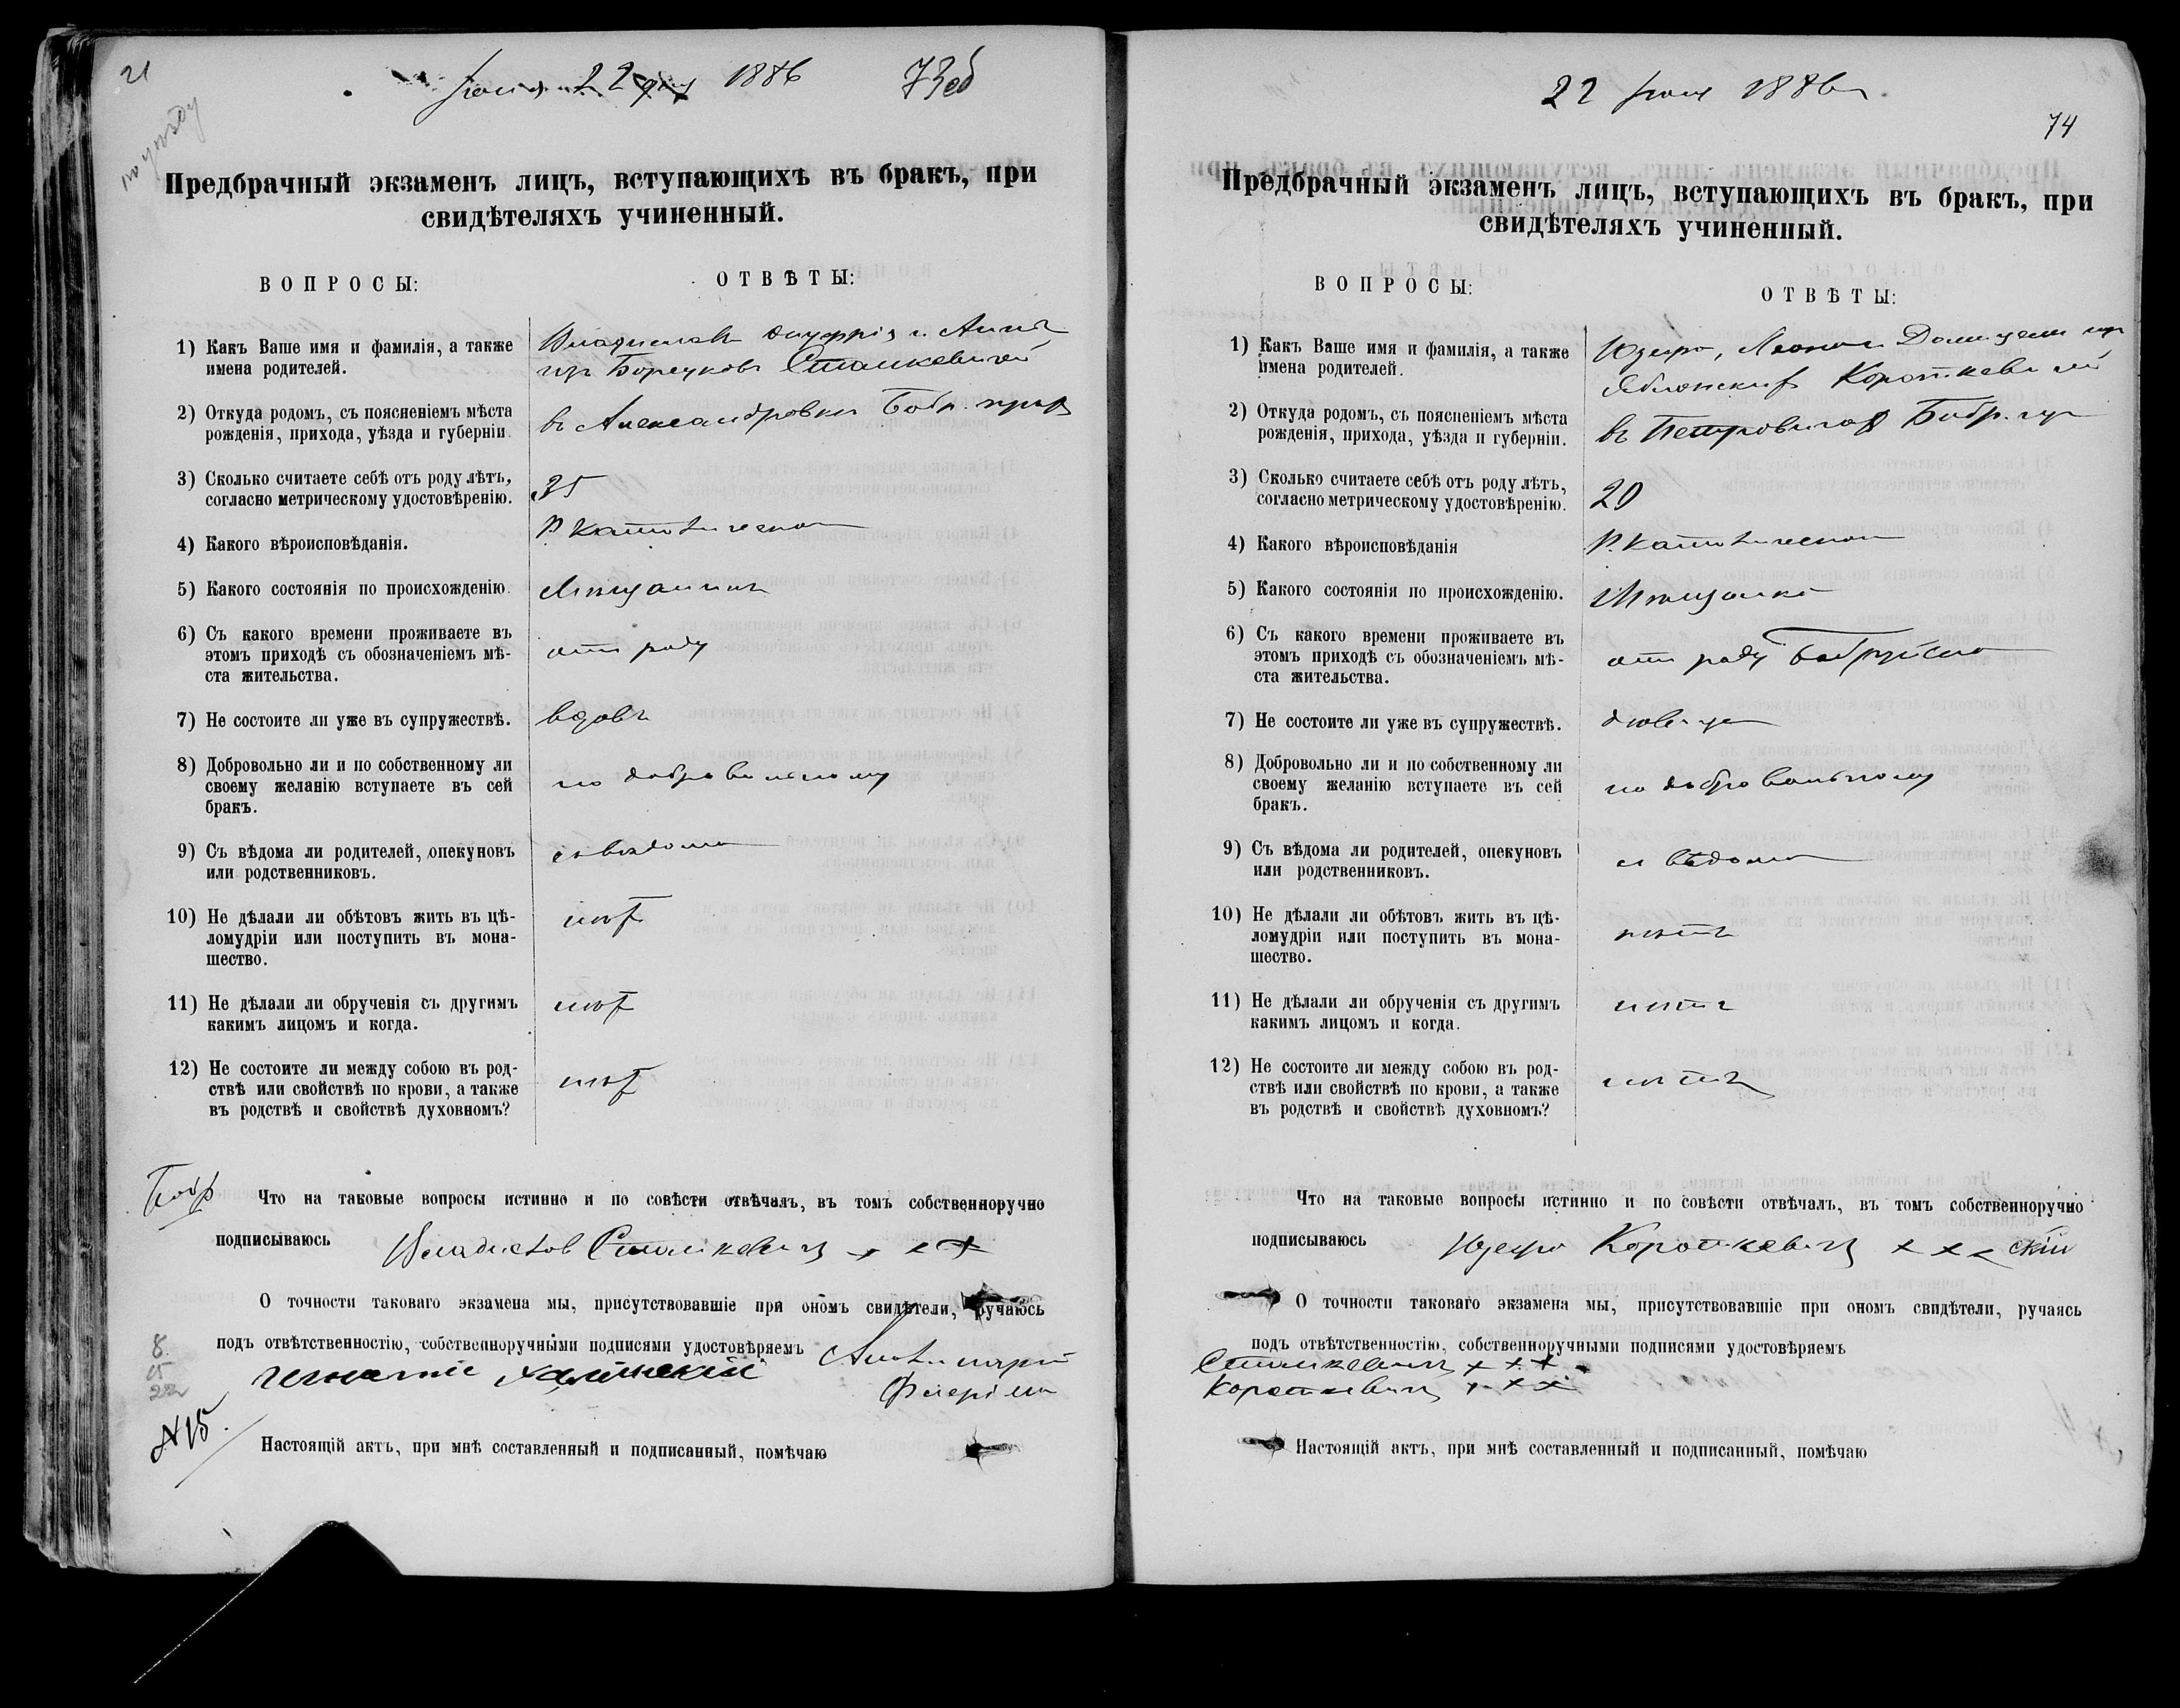 21
Іюня 22 дня 1886
73об
Предбрачный экзаменъ лицъ, вступающихъ въ бракъ, при
свидѣтеляхъ учиненный.
ВОПРОСЫ:
ОТВѢТЫ:
1) Какъ Ваше имя и фамилія, а также
имена родителей.
Станкевичей
2) Откуда родомъ, съ поясненіемъ мѣста
рожденія, прихода, уѣзда и губерніи.
въ Александровкѣ Бобр. прих
3) Сколько считаете себѣ отъ роду лѣтъ,
согласно метрическому удостовѣренію.
35
4) Какого вѣроисповѣданія.
Р. Католическаго
5) Какого состоянія по происхожденію.
Мѣщанинъ
6) Съ какого времени проживаете въ
этомъ приходѣ съ обозначеніемъ мѣ-
ста жительства.
отъ роду
7) Не состоите ли уже въ супружествѣ.
вдовъ
8) Добровольно ли и по собственному ли
своему желанію вступаете въ сей
бракъ.
по добровольному
9) Съ вѣдома ли родителей, опекуновъ
или родственниковъ.
съ вѣдома
10) Не дѣлали ли обѣтовъ жить въ цѣ-
ломудріи или поступить въ мона-
шество.
нѣтъ
11) Не дѣлали ли обрученія съ другимъ
какимъ лицомъ и когда.
нѣтъ
12) Не состоите ли между собою въ род-
ствѣ или свойствѣ по крови, а также
въ родствѣ и свойствѣ духовномъ?
нѣтъ
Бобр
Что на таковые вопросы истинно и по совѣсти отвѣчалъ, въ томъ собственноручно
подписываюсь Владиславъ Станкевичъ × × ×
О точности таковаго экзамена мы, присутствовавшіе при ономъ свидѣтели, ручаюсь
подъ отвѣтственностію, собственноручными подписями удостовѣряемъ
8
15
22
№15.
Настоящій актъ, при мнѣ составленный и подписанный, помѣчаю
22 Іюня 1886
74
Предбрачный экзаменъ лицъ, вступающихъ въ бракъ, при
свидѣтеляхъ учиненный.
ВОПРОСЫ:
ОТВѢТЫ:
1) Какъ Ваше имя и фамилія, а также
имена родителей.
Короткевичей
2) Откуда родомъ, съ поясненіемъ мѣста
рожденія, прихода, уѣзда и губерніи.
въ Петровичахъ Бобр.
3) Сколько считаете себѣ отъ роду лѣтъ,
согласно метрическому удостовѣренію.
20
4) Какого вѣроисповѣданія
Р. Католическаго
5) Какого состоянія по происхожденію.
Мѣщанка
6) Съ какого времени проживаете въ
этомъ приходѣ съ обозначеніемъ мѣ-
ста жительства.
отъ роду
7) Не состоите ли уже въ супружествѣ.
дѣвица
8) Добровольно ли и по собственному ли
своему желанію вступаете въ сей
бракъ.
по добровольному
9) Съ вѣдома ли родителей, опекуновъ
или родственниковъ.
съ вѣдома
10) Не дѣлали ли обѣтовъ жить въ цѣ-
ломудріи или поступить въ мона-
шество.
нѣтъ
11) Не дѣлали ли обрученія съ другимъ
какимъ лицомъ и когда.
нѣтъ
12) Не состоите ли между собою въ род-
ствѣ или свойствѣ по крови, а также
въ родствѣ и свойствѣ духовномъ?
нѣтъ
Что на таковые вопросы истинно и по совѣсти отвѣчалъ, въ томъ собственноручно
подписываюсь Короткевичъ × × ×
О точности таковаго экзамена мы, присутствовавшіе при ономъ свидѣтели, ручаясь
подъ отвѣтственностію, собственноручными подписями удостовѣряемъ
Станкевичъ × × ×
Короткевичъ × × ×
Настоящій актъ, при мнѣ составленный и подписанный, помѣчаю